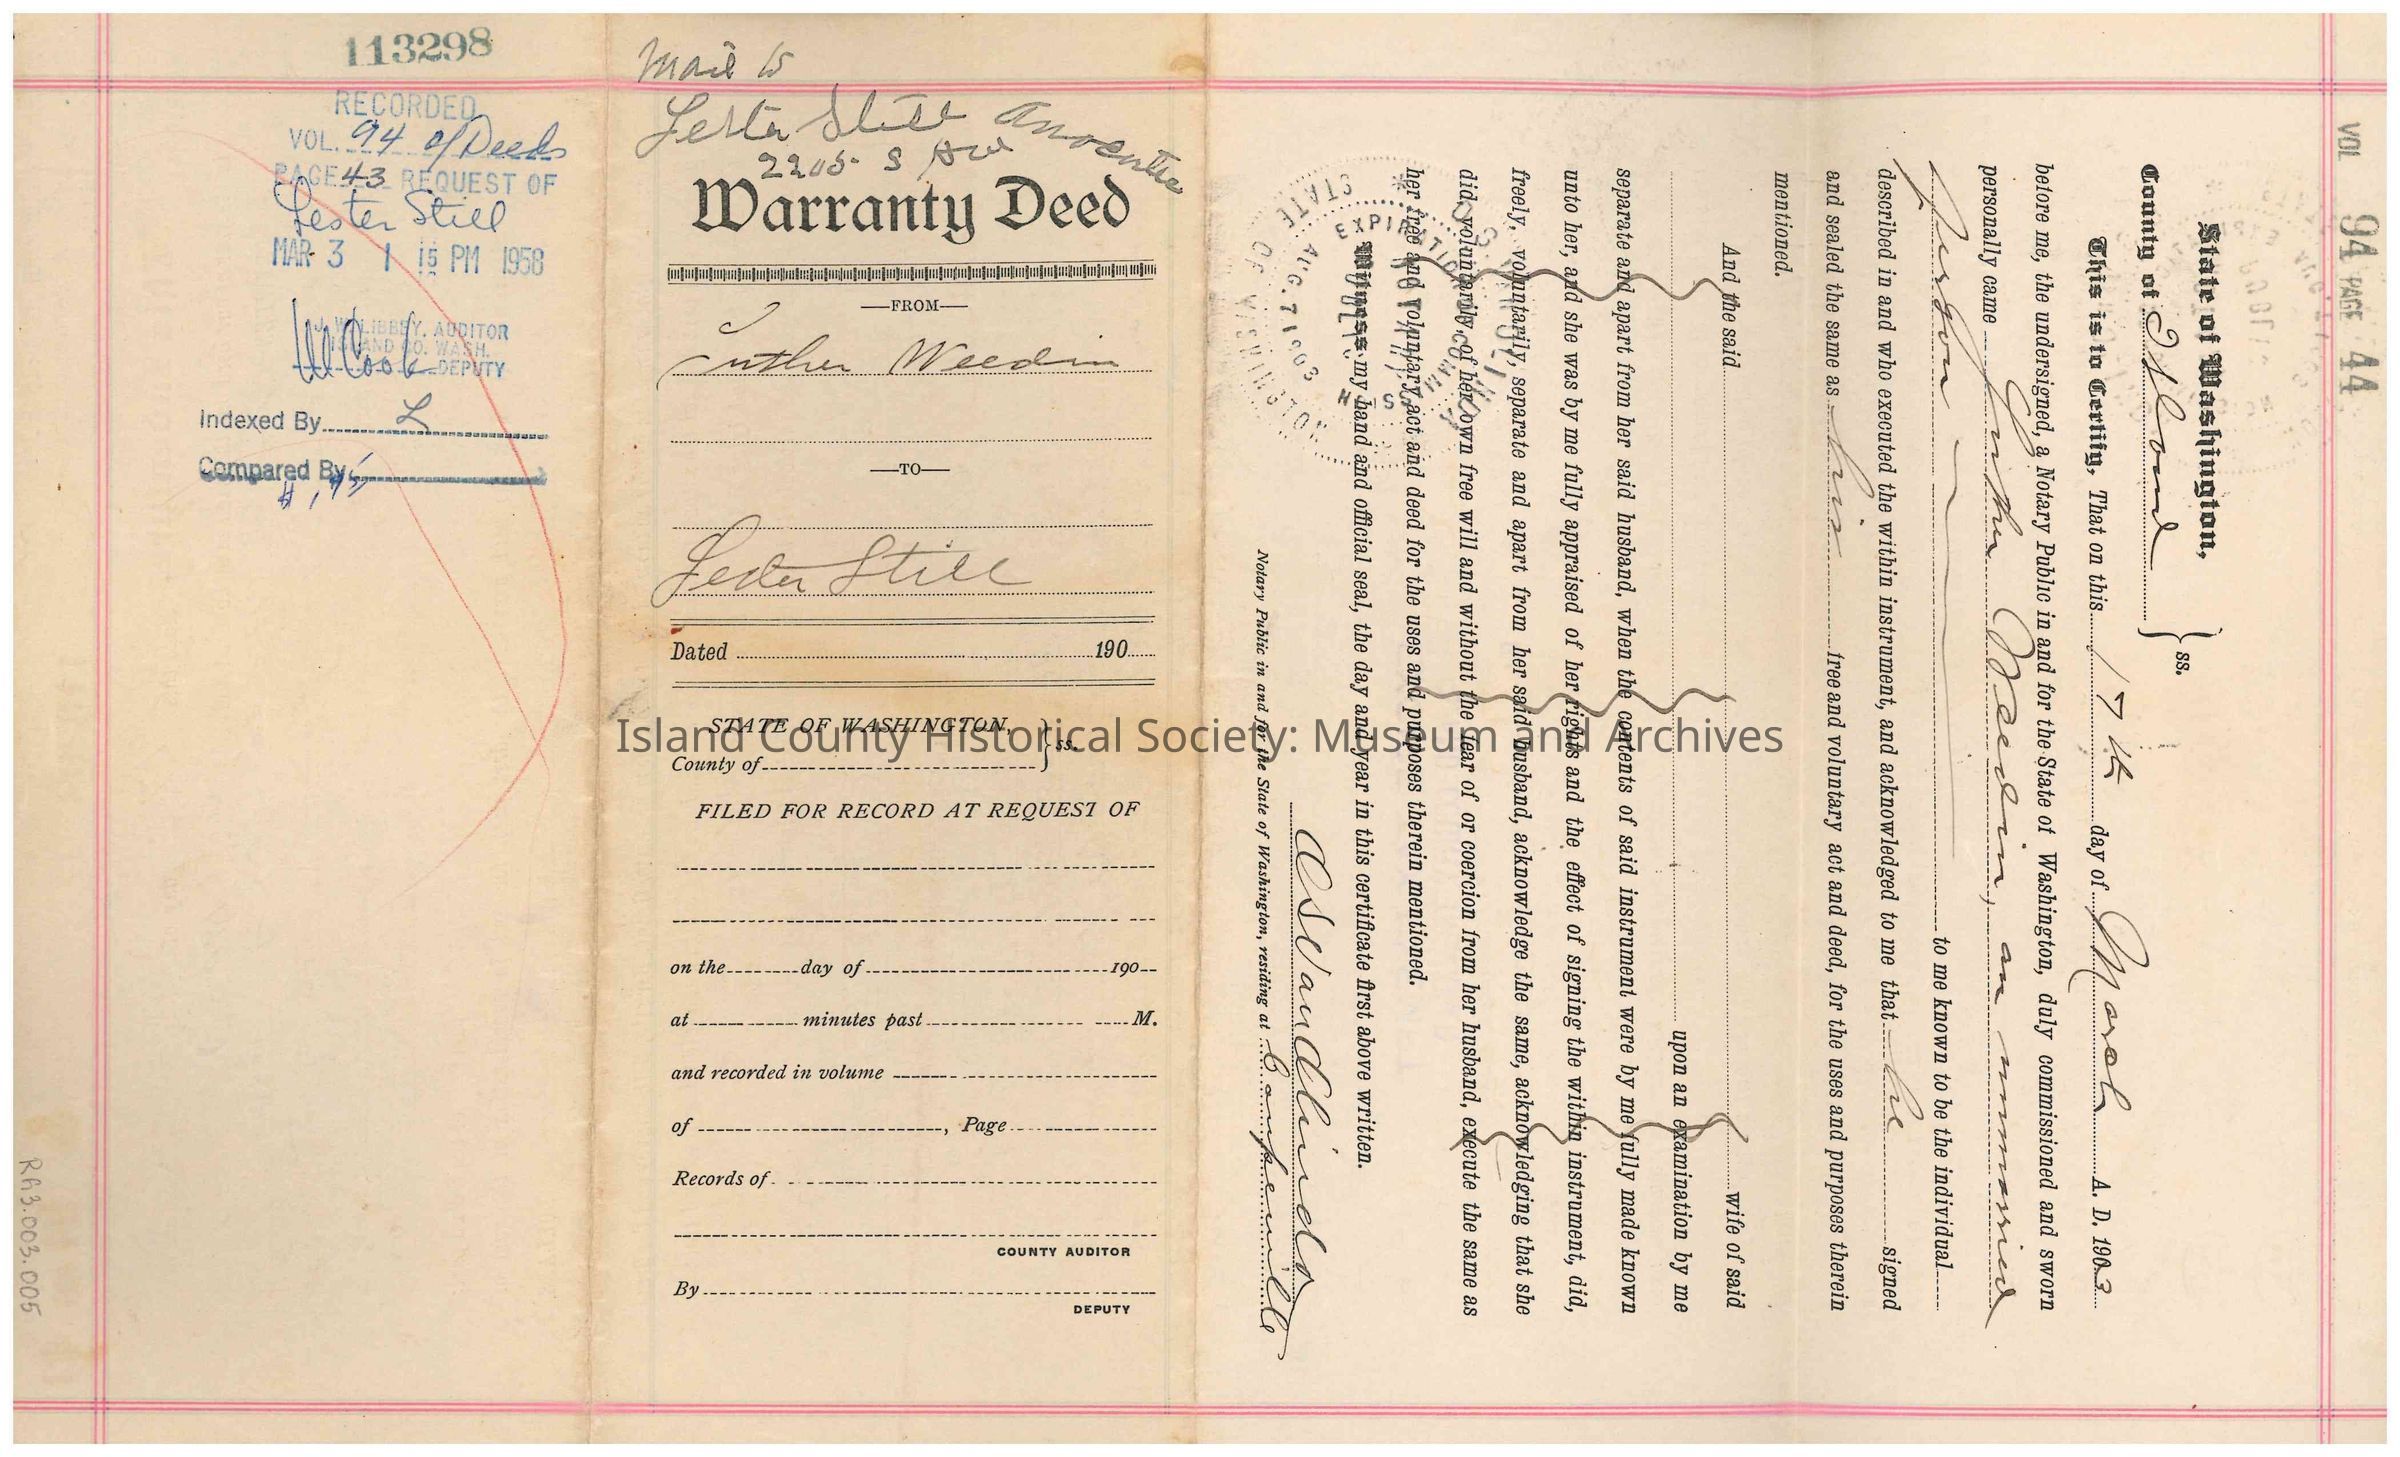 113298
RECORDED
VOL. 94 of Deeds
PAGE 43 REQUEST OF
Lester Still
MAR 3 1 15 PM 1958
J. W. LIBBEY, AUDITOR
ISLAND CO. WASH.
W Cook DEPUTY
Indexed By L
Compared By
RA3.003.005
Mail to
Lester Still Anacortes
2205 S Ave
Warranty Deed
—FROM—
Luther Weedin
—TO—
Lester Still
Dated 190
STATE OF WASHINGTON, } ss.
County of
FILED FOR RECORD AT REQUEST OF
on the day of 190
at minutes past M.
and recorded in volume
of , Page
Records of
COUNTY AUDITOR
By
DEPUTY
VOL 94 PAGE 44
State of Washington,
County of Island } ss.
This is to Certify, That on this 17th day of March A. D. 1903
before me, the undersigned, a Notary Public in and for the State of Washington, duly commissioned and sworn
personally came Luther Weedin, an unmarried
person to me known to be the individual
described in and who executed the within instrument, and acknowledged to me that he signed
and sealed the same as his free and voluntary act and deed, for the uses and purposes therein
mentioned.
And the said wife of said
upon an examination by me
separate and apart from her said husband, when the contents of said instrument were by me fully made known
unto her, and she was by me fully appraised of her rights and the effect of signing the within instrument, did,
freely, voluntarily, separate and apart from her said husband, acknowledge the same, acknowledging that she
did, voluntarily, of her own free will and without the fear of or coercion from her husband, execute the same as
her free and voluntary act and deed for the uses and purposes therein mentioned.
Witness my hand and official seal, the day and year in this certificate first above written.
Notary Public in and for the State of Washington, residing at Coupeville
STATE OF WASHINGTON
EXPIRATION
AUG. 7 1903
Island County Historical Society: Museum and Archives